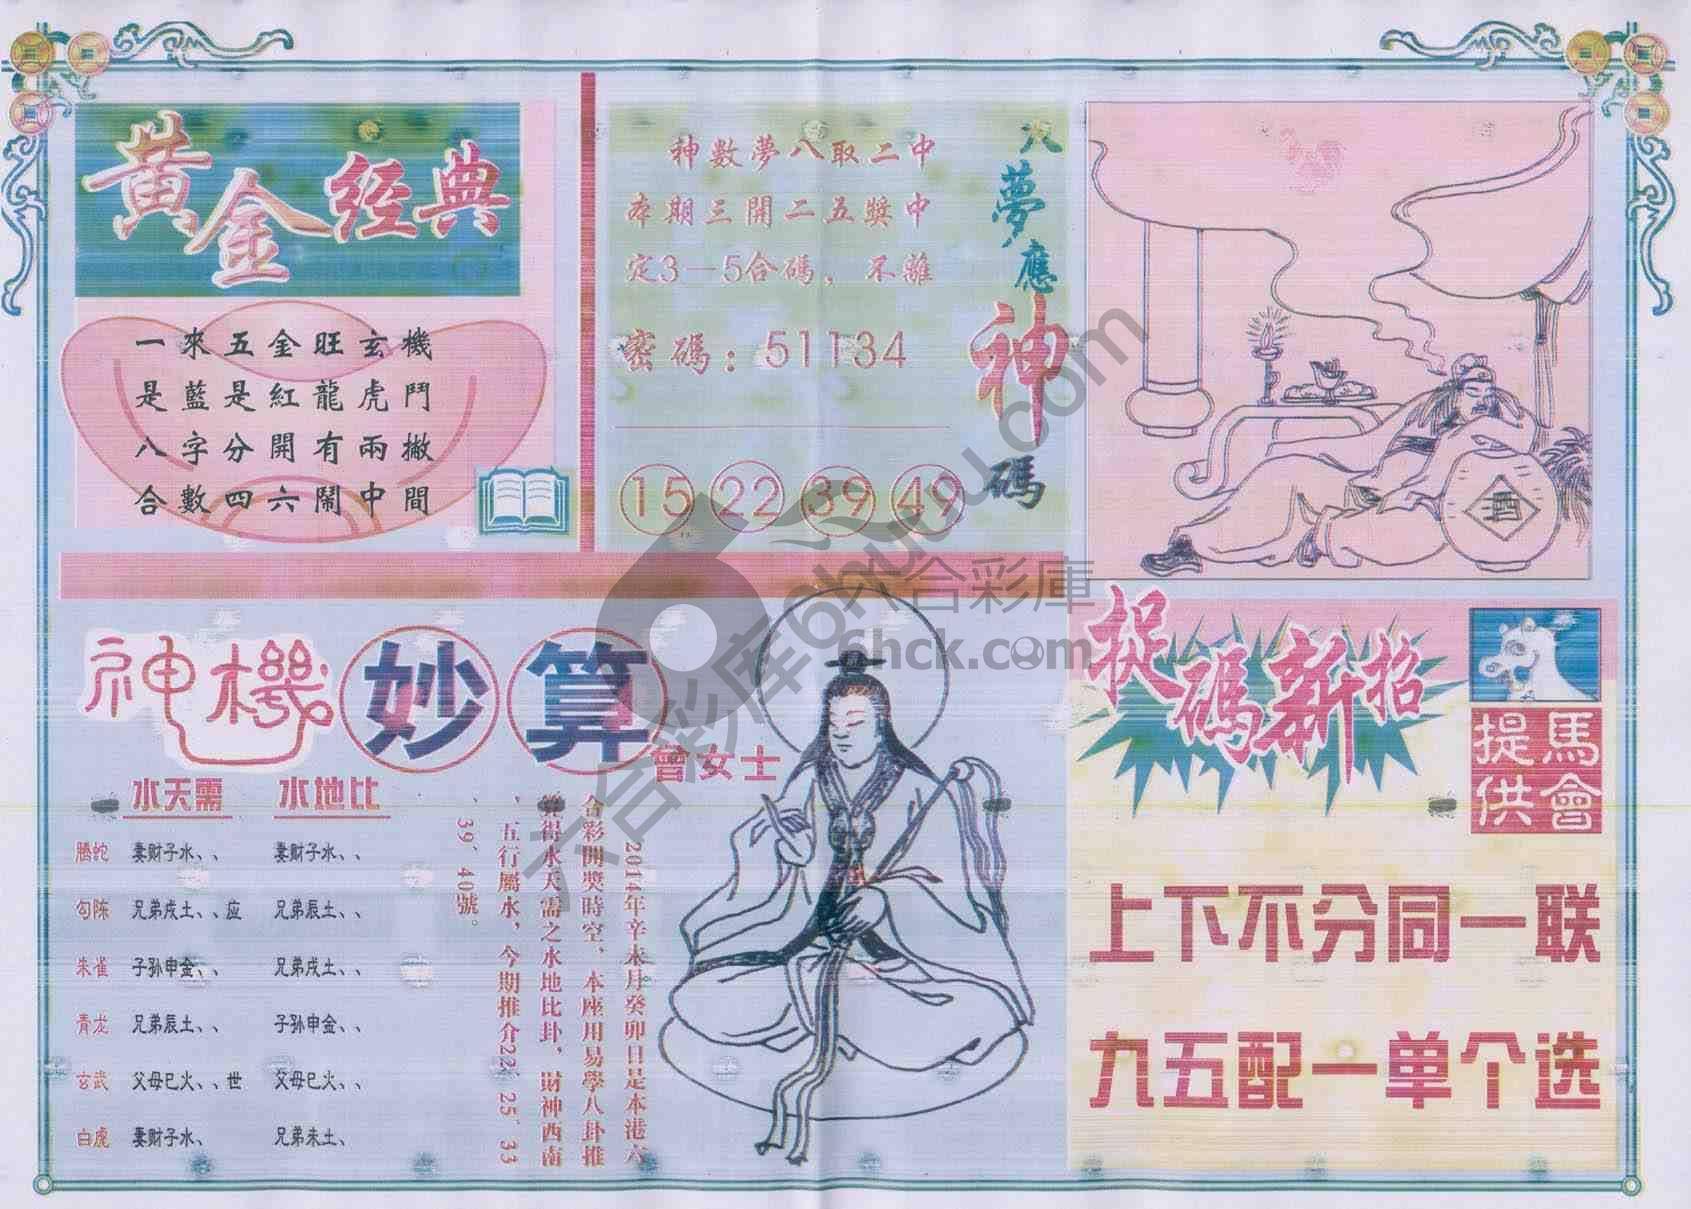 黃金經典
一來五金旺玄機
是藍是紅龍虎鬥
八字分開有兩撇
合數四六鬧中間
八夢應神碼
神數夢八取二中
本期三開二五獎中
定3—5合碼，不離
密碼：51134
15 22 39 49
酒
神機妙算
曾女士
水天需 水地比
腾蛇 妻财子水、、 妻财子水、、
勾陈 兄弟戍土、、应 兄弟辰土、、
朱雀 子孙申金、、 兄弟戍土、、
青龙 兄弟辰土、、 子孙申金、、
玄武 父母巳火、、世 父母巳火、、
白虎 妻财子水、 兄弟未土、
2014年辛未月癸卯日是本港六
合彩開獎時空、本座用易學八卦推
算得水天需之水地比卦，財神西南
、五行屬水，今期推介22、25、33
、39、40號。
捉碼新招
馬會提供
上下不分同一联
九五配一单个选
六合彩库6huuu.com
六合彩庫
6hck.com